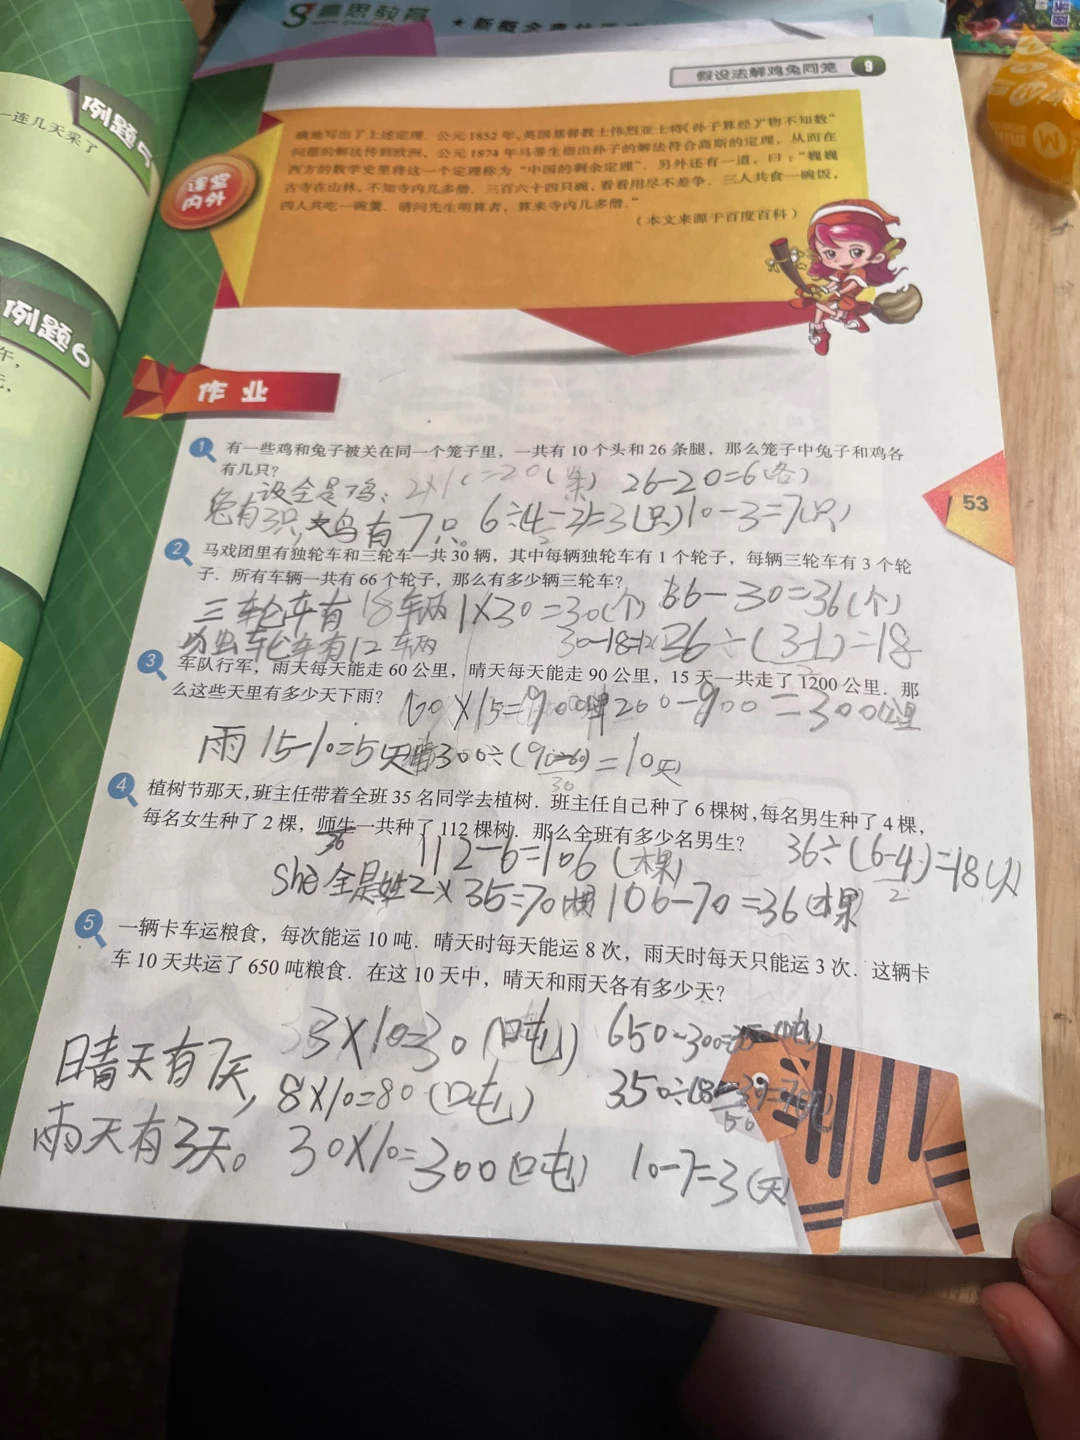 高思教育
例题5
一连几天采了
例题6
假设法解鸡兔同笼 9
课堂
内外
确地写出了上述定理．公元1852年，英国基督教士伟烈亚士将《孙子算经》“物不知数”
问题的解法传到欧洲，公元1874年马蒂生指出孙子的解法符合高斯的定理，从而在
西方的数学史里将这一个定理称为“中国的剩余定理”．另外还有一道，曰：“巍巍
古寺在山林，不知寺内几多僧．三百六十四只碗，看看用尽不差争．三人共食一碗饭，
四人共吃一碗羹．请问先生明算者，算来寺内几多僧．”
（本文来源于百度百科）
作业
1 有一些鸡和兔子被关在同一个笼子里，一共有10个头和26条腿，那么笼子中兔子和鸡各
有几只？
设全是鸡：2×10=20(条) 26-20=6(各)
兔有3只，鸟有7只。 6÷(4-2)=3(只) 10-3=7(只)
2
53
2 马戏团里有独轮车和三轮车一共30辆，其中每辆独轮车有1个轮子，每辆三轮车有3个轮
子．所有车辆一共有66个轮子，那么有多少辆三轮车？
三轮车有18车辆 1×30=30(个) 66-30=36(个)
轮车有12车辆 30-18=12 36÷(3-1)=18
3 军队行军，雨天每天能走60公里，晴天每天能走90公里，15天一共走了1200公里．那
么这些天里有多少天下雨？
60×15=900 1200-900=300公里
雨 15-10=5天 晴300÷(90-60)=10天
30
4 植树节那天，班主任带着全班35名同学去植树．班主任自己种了6棵树，每名男生种了4棵，
每名女生种了2棵，师生一共种了112棵树．那么全班有多少名男生？
36 112-6=106(棵) 36÷(6-4)=18(人)
2
She全是姓2×35=70棵 106-70=36(棵)
5 一辆卡车运粮食，每次能运10吨．晴天时每天能运8次，雨天时每天只能运3次．这辆卡
车10天共运了650吨粮食．在这10天中，晴天和雨天各有多少天？
3×10=30(吨) 650-300=35(吨)
晴天有7天，
8×10=80(吨) 350÷(8-3)=7
50
雨天有3天。 30×10=300(吨) 10-7=3(天)